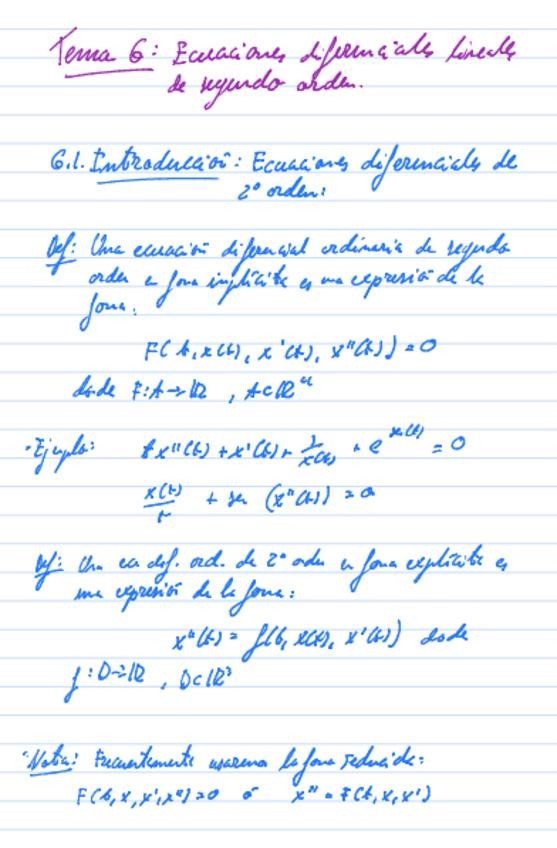 Tema 6: Ecuaciones diferenciales lineales
de segundo orden.
6.1. Introducción: Ecuaciones diferenciales de
2º orden:
Def: Una ecuación diferencial ordinaria de segundo
orden en forma implícita es una expresión de la
forma:
F(t, x(t), x'(t), x''(t)) = 0
donde F: A → ℝ , A ⊂ ℝ⁴
· Ejemplo: t x''(t) + x'(t) + 1/x(t) + e^x(t) = 0
x(t)/t + sen (x''(t)) = 0
Def: Una ec. dif. ord. de 2º orden en forma explícita es
una expresión de la forma:
x''(t) = f(t, x(t), x'(t)) donde
f: D → ℝ , D ⊂ ℝ³
· Nota: Frecuentemente usaremos la forma reducida:
F(t, x, x', x'') = 0 ó x'' = F(t, x, x')